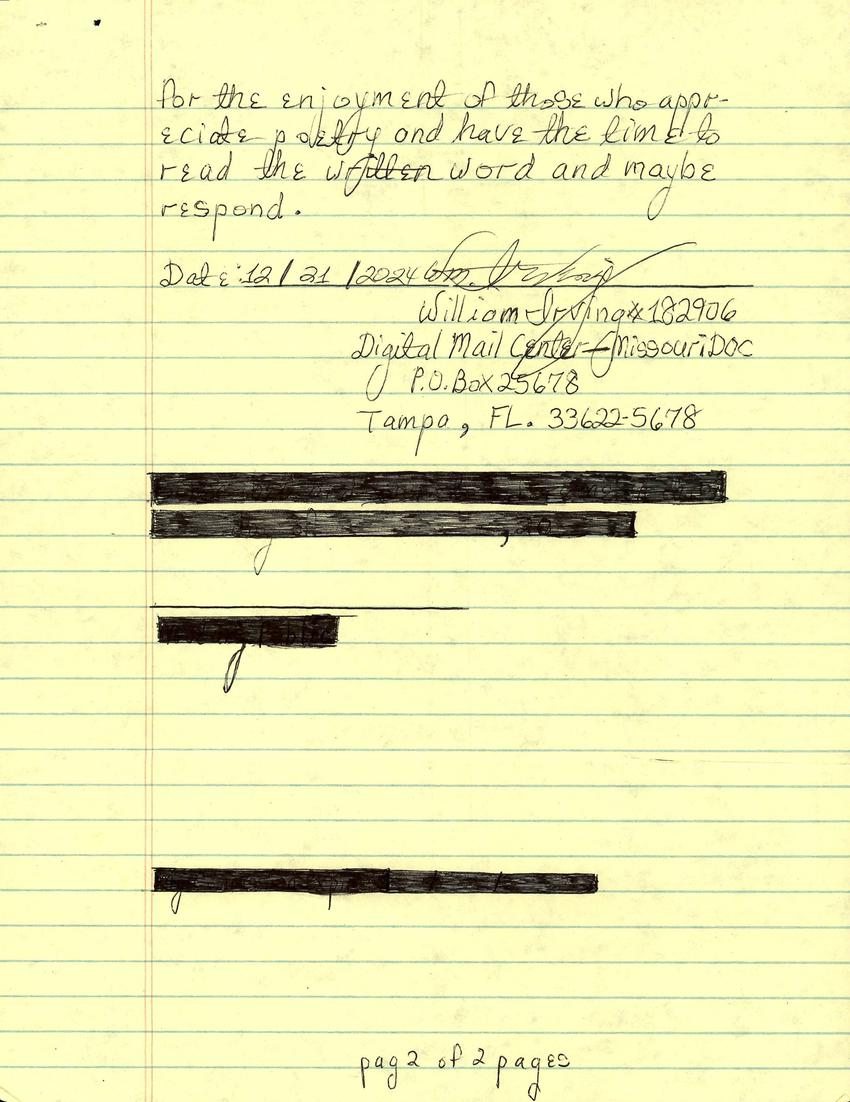 for the enjoyment of those who appr-
eciate poetry and have the time to
read the written word and maybe
respond.
Date: 12/21/2024 Wm. Irving
William Irving#182906
Digital Mail Center-MissouriDOC
P.O.Box 25678
Tampa, FL. 33622-5678
pag 2 of 2 pages